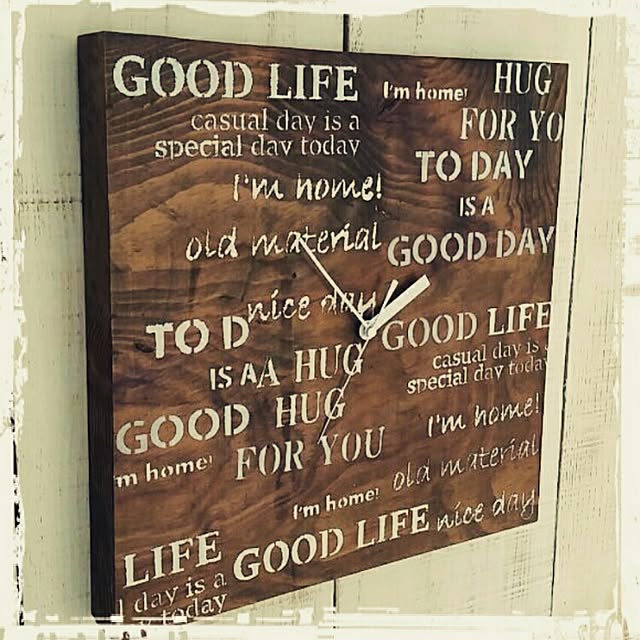 GOOD LIFE
casual day is a
special day today
I'm home!
old material
nice day
I'm home!
HUG
FOR YO
TO DAY
IS A
GOOD DAY
TO D
IS A
GOOD
A HUG
HUG
FOR YOU
m home!
GOOD LIFE
casual day is
special day today
I'm home!
old material
nice day
I'm home!
GOOD LIFE
LIFE
l day is a
today